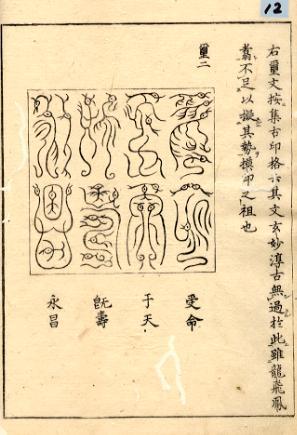 12
右璽文按集古印格云其文玄妙淳古無過於此雖龍飛鳳
翥不足以擬其勢摸印之祖也
璽二
受命
于天
既壽
永昌